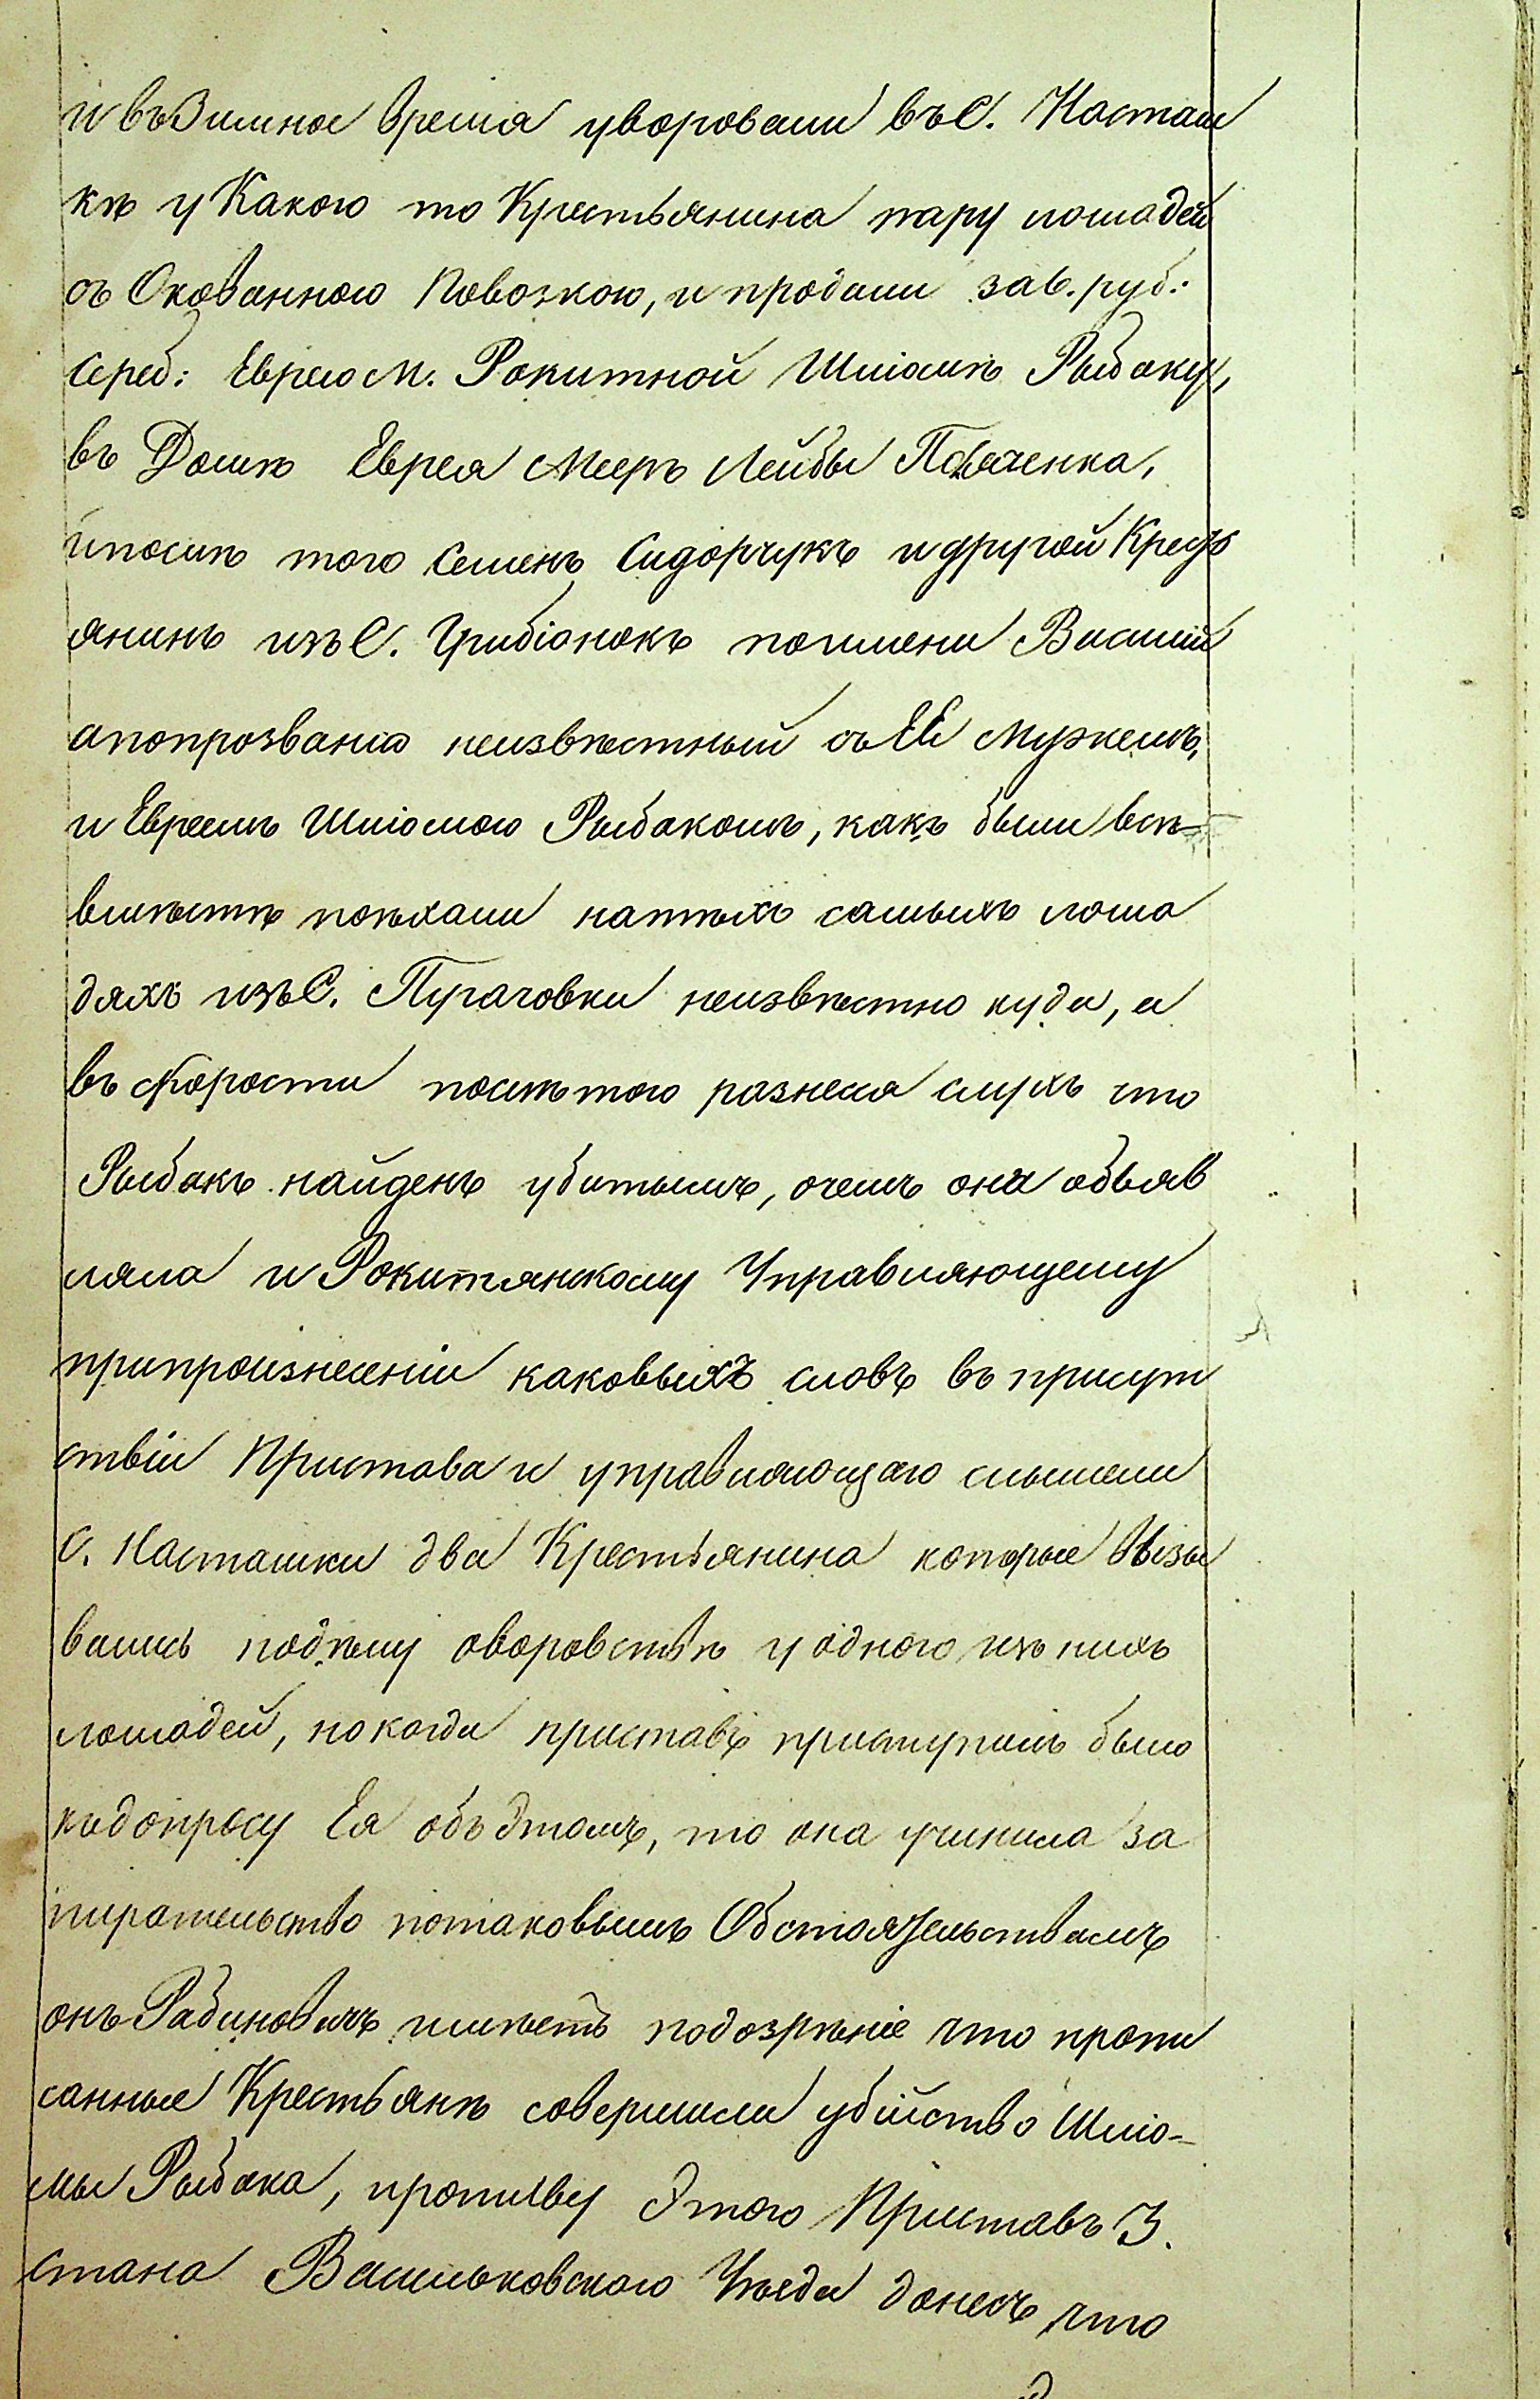 и въ Зимное время уворовали въ С. Насташ
кѣ у Какого то Крестьянина пару лошадей
съ Окованною Повозкою, и продали за 6. руб.:
сереб: Еврею М. Рокитной Шліомѣ Рыбаку,
въ Домѣ Еврея Меера Лейбы
и послѣ того Семенъ Сидорчукъ и другой Крест
янинъ изъ С. Грибіонокъ по имени Василій
а попрозванію неизвѣстный съ ЕЕ Мужемъ,
и Евреемъ Шліомою Рыбакомъ, какъ были всѣ
вмѣстѣ поѣхали на тѣхъ самыхъ лоша
дяхъ изъ С. Пугачовки неизвѣстно куда, а
въ скорости послѣ того разнеся слухъ что
Рыбакъ найденъ убитымъ, о чемъ она объяв
ляла и Рокитянскому Управляющему
при произнесеніи каковыхъ словъ въ присут
ствіи Пристава и управляющаго слышели
С. Насташки два Крестьянина которые
вались о воровствѣ у одного изъ нихъ
лошадей, но когда приставъ приступилъ было
къ допросу Ея объ Этомъ, то она учинила за
пирательство по таковымъ Обстоятельствамъ
онъ Рабиновичъ имѣетъ подозрѣніе что пропи
санные Крестьянѣ совершили убійство Шліо-
мы Рыбака, противу Этого Приставъ 3.
стана Васильковского Уѣзда донесъ что